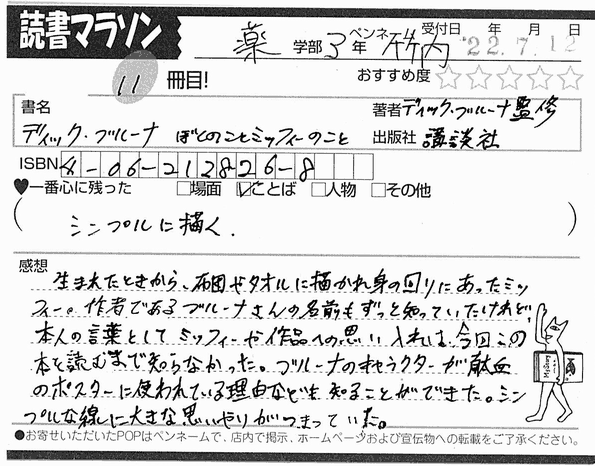 読書マラソン
薬 学部 3年 ペンネーム 竹内 受付日 '22.7.12 年 月 日
11 冊目! おすすめ度 ☆☆☆☆☆
書名 著者 ディック・ブルーナ監修
ディック・ブルーナ ぼくのことミッフィーのこと 出版社 講談社
ISBN 4-06-212826-8
♥一番心に残った □場面 ☑ことば □人物 □その他
( シンプルに描く. )
感想
生まれたときから、布団やタオルに描かれ身の回りにあったミッ
フィー。作者であるブルーナさんの名前もずっと知っていたけれど、
本人の言葉として ミッフィーや作品への思い入れは、今回この
本を読むまで知らなかった。ブルーナのキャラクターが献血
のポスターに使われている理由なども知ることができた。シン
プルな線に大きな思いやりがつまっていた。
●お寄せいただいたPOPはペンネームで、店内で掲示、ホームページおよび宣伝物への転載をご了承ください。